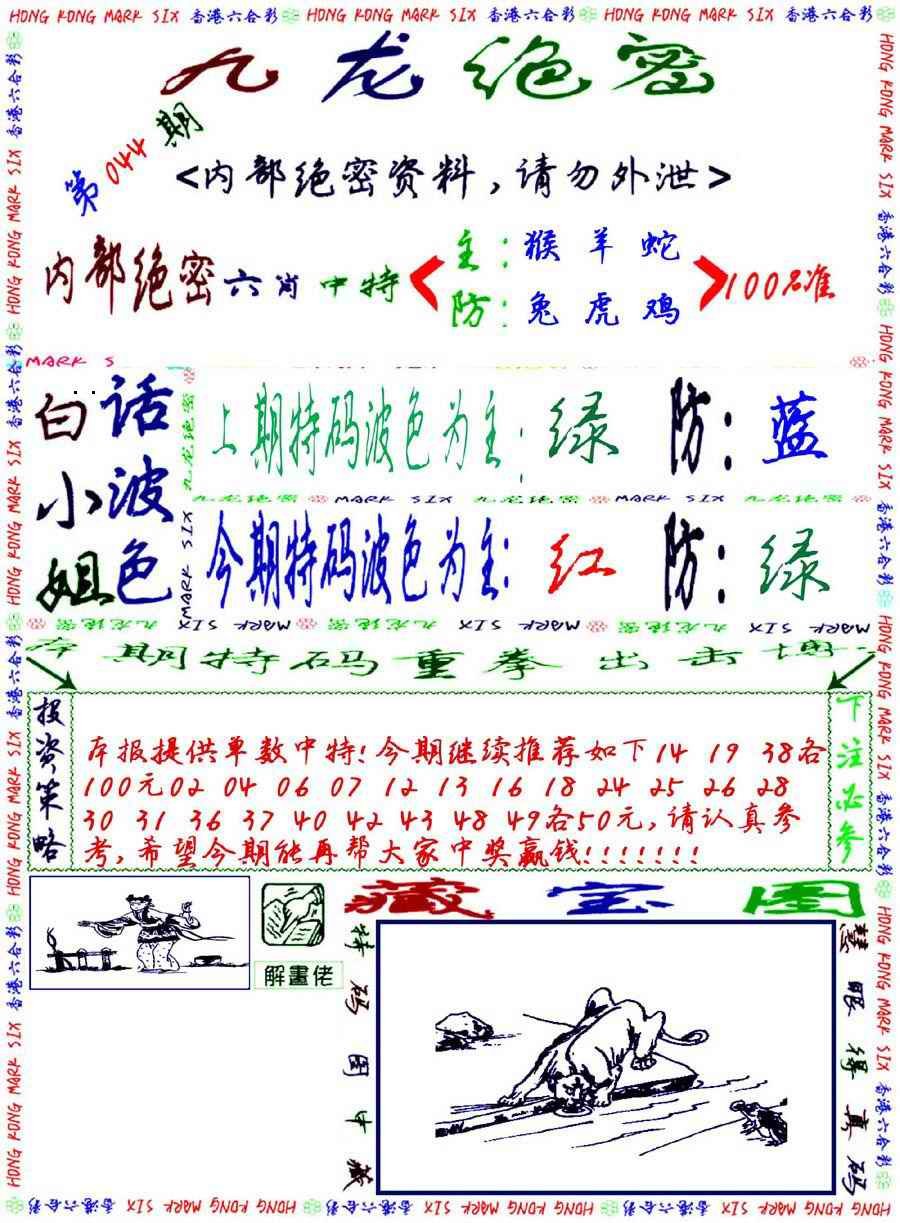 HONG KONG MARK SIX 香港六合彩 HONG KONG MARK SIX 香港六合彩 HONG KONG MARK SIX 香港六合彩
九龙绝密
第044期
<内部绝密资料,请勿外泄>
内部绝密六肖中特
主:猴羊蛇
防:兔虎鸡
100%准
MARK S
白话
小波
姐色
九龙绝密
MARK SIX
上期特码波色为主:绿 防:蓝
九龙绝密 MARK SIX 九龙绝密 MARK SIX 九龙绝密
今期特码波色为主:红 防:绿
九龙绝密 MARK SIX 九龙绝密 MARK SIX 九龙绝密 MARK SIX
本期特码重拳出击
报资策略
本报提供单数中特!今期继续推荐如下14 19 38各
100元02 04 06 07 12 13 16 18 24 25 26 28
30 31 36 37 40 42 43 48 49各50元,请认真参
考,希望今期能再帮大家中奖赢钱!!!!!!!
下注必参
藏宝图
解畫佬
特码图中藏
慧眼得真码
HONG KONG MARK SIX 香港六合彩 HONG KONG MARK SIX 香港六合彩 HONG KONG MARK SIX 香港六合彩